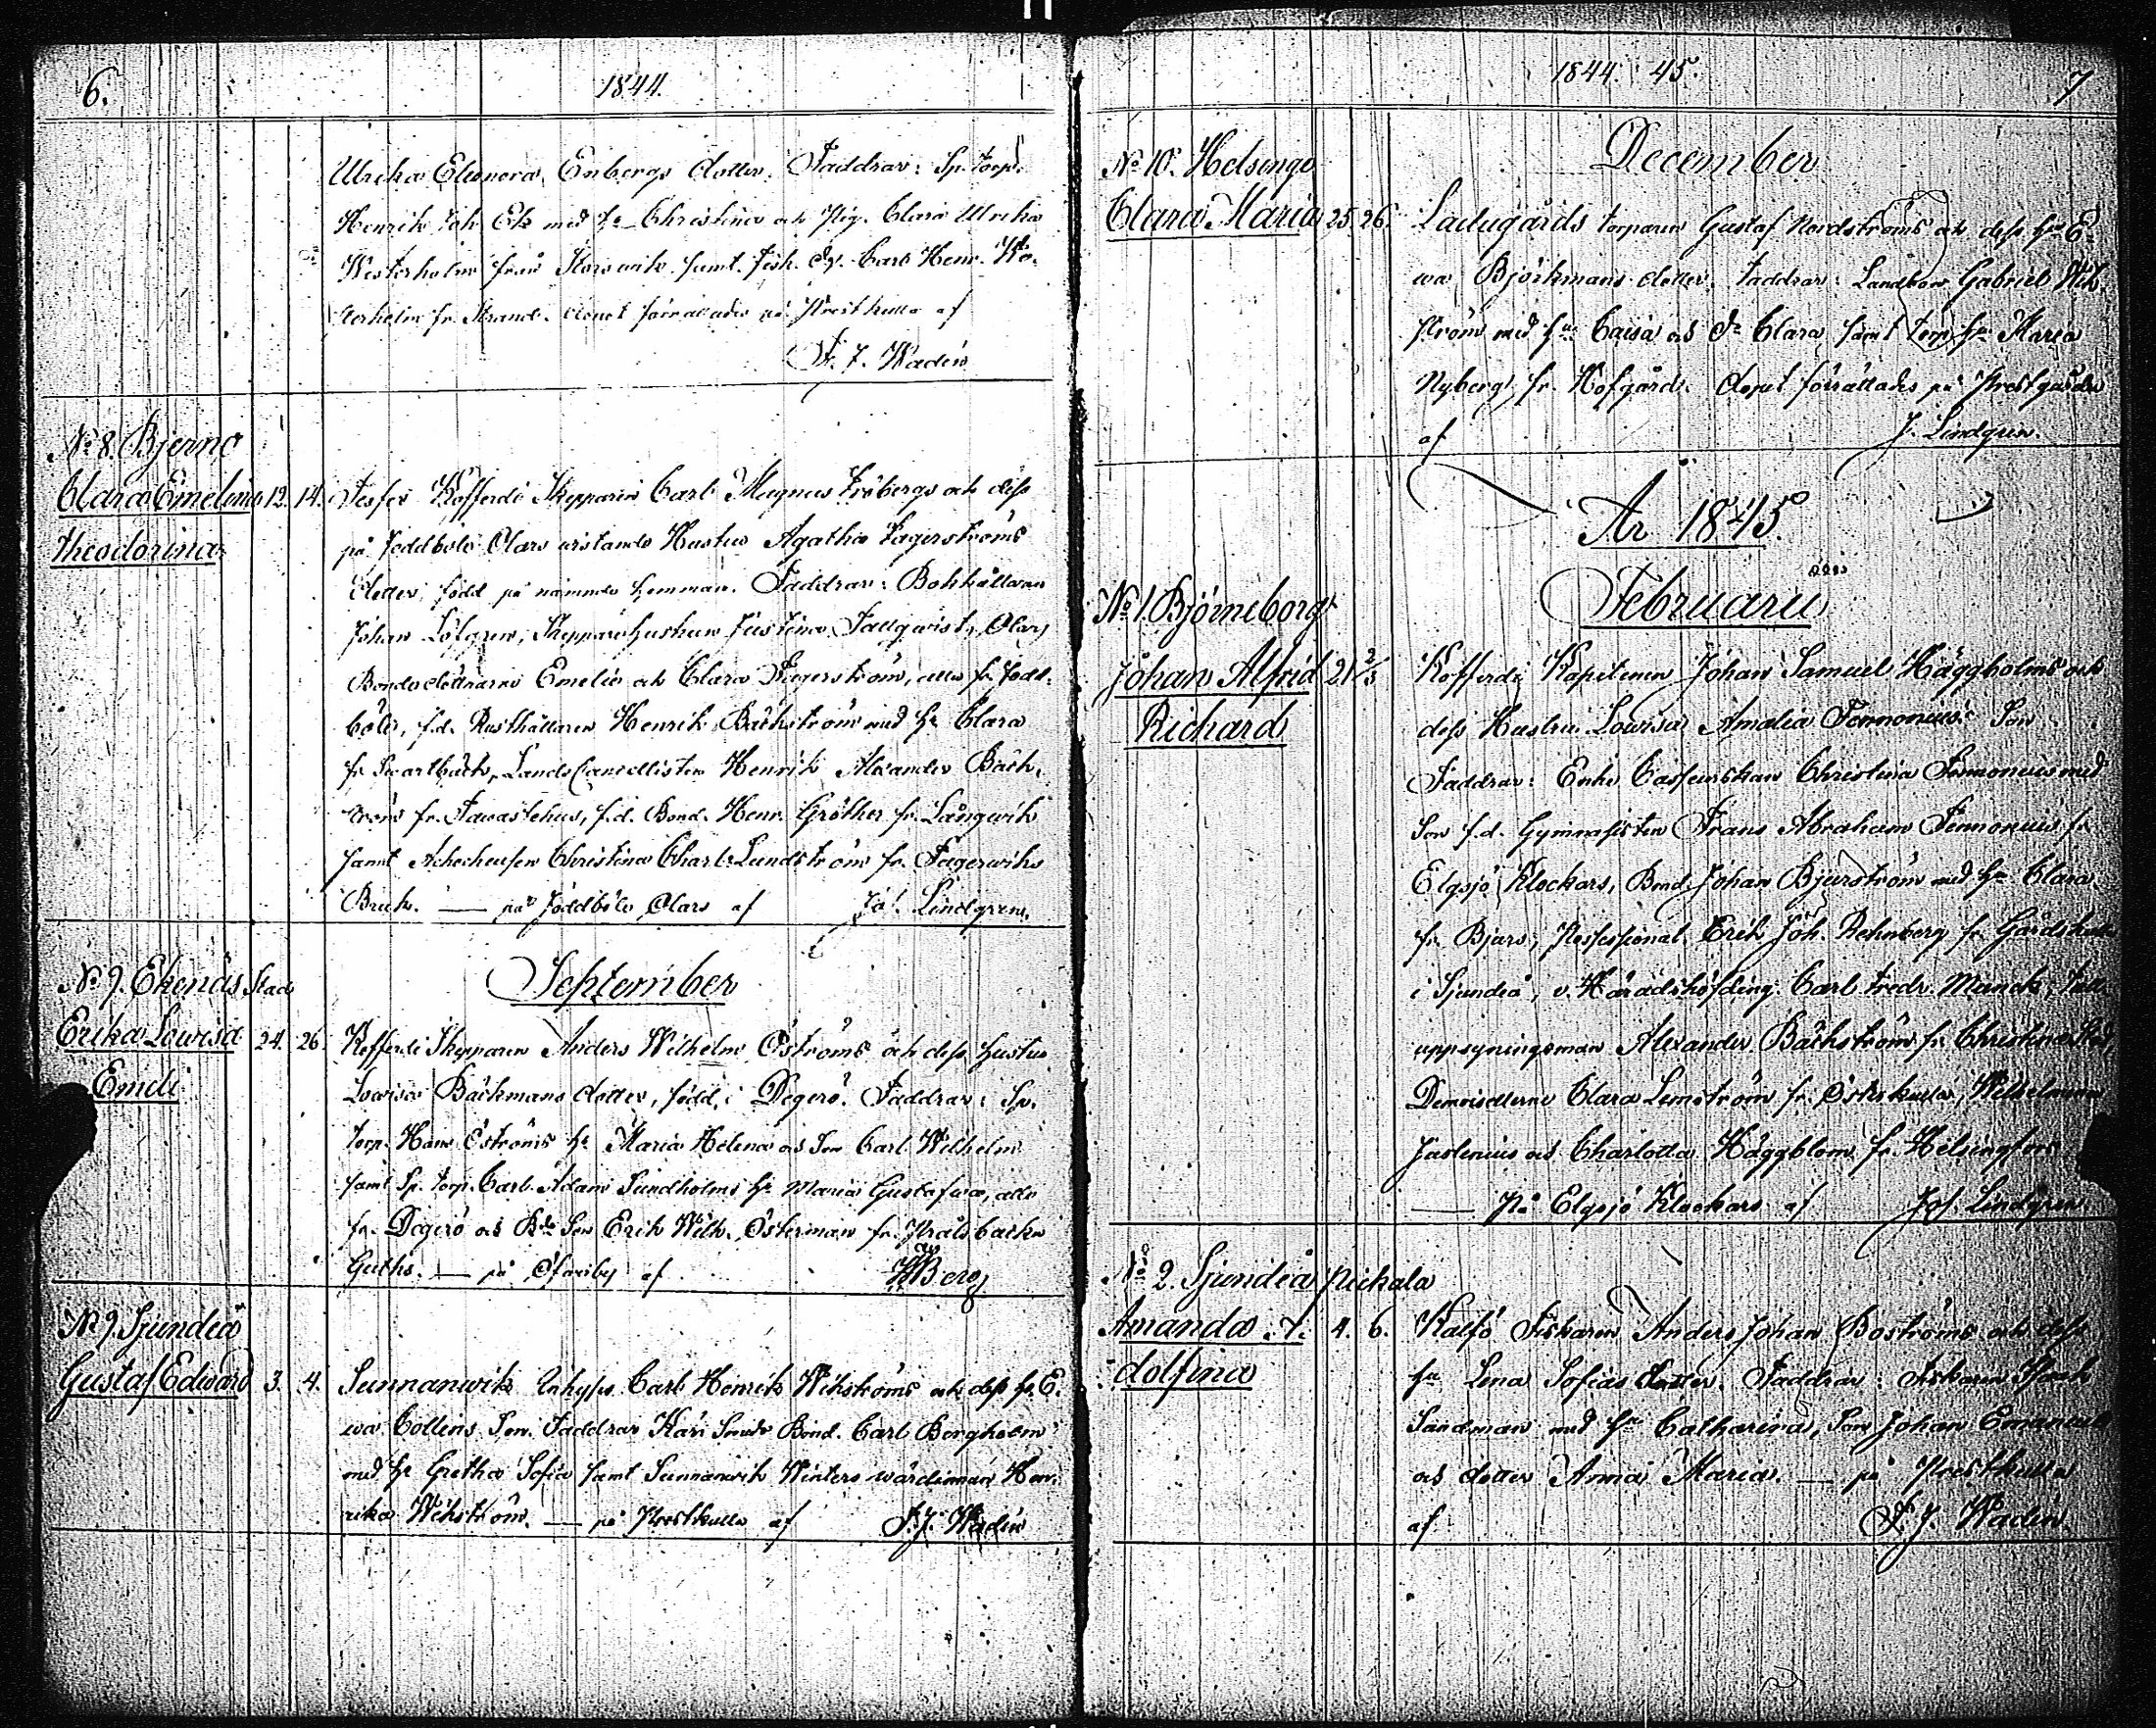 6.
1844.
Ulrika Eleonora Enbergs dotter. Faddrar: Sp. Torp.
Henrik Joh. Ek med h. Christina och Pig. Clara Ulrika
Westerholm från samt Fisk. Carl Henr. We-
sterholm fr. Strand. dopet förrättades på Prestkulla af
F. J. Wadén
No 8. Bjerno
Clara Emelina 12. 14.
Theodorina
Kofferdi Skepparen Carl Magnus Frobergs och dess
på Joddböle Olars Hustru Agatha Fagerströms
dotter, född på nämnde hemman. Faddrar: Bokhållaren
Johan Löfgren, Skepparehustrun Justina Olars
Bondedöttrarne Emelie och Clara Fagerström, alla fr. Jodd-
böle, f.d. Rusthållaren Henrik Bäckström med h. Clara
fr. Swartbäck, LandsCancellisten Henrik Alexander Bäck-
ström fr. Tawastehus, f.d. Bond. Henr. Gröther fr. Långwik
samt Christina Charl. Lundström fr. Fagerwiks
Bruk. — på Joddböle Olars af Joh. Lindgren.
September
No 9. Ekenäs Stad
Erika Lowisa 24. 26
Emeli
Kofferdi Skepparen Anders Wilhelm Öströms och dess hustru
Lowisa Bäckmans dotter, född i Degerö. Faddrar: Sp.
Torp. Hans Öströms h. Maria Helena och Son Carl Wilhelm
samt Sp. Torp. Carl Adam Sundholms h. Maria Gustafwa, alla
fr. Degerö och Bde Son Erik Wilh. Österman fr.
— på Öfwerby af Berg
No 9. Sjundeå
Gustaf Edward 3. 4.
Sunnanwik Inhyses Carl Henrik Wikströms och dess h. E-
wa Collens Son. Faddrar Bond. Carl Bergholm
med h. Gretha Sofia samt Sunnanwik Winters wärdinnan Hen-
rika Wikström. — på Prestkulla af F. J. Wadén
1844. 45.
7
December
No 10. Helsinge
Clara Maria 25. 26.
Ladugårds torparen Gustaf Nordströms och dess hu E-
wa Björkmans dotter. Faddrar: Landbon Gabriel Wik-
ström med hu Caisa och Dr Clara samt Torp. hu Maria
Nyberg, fr. Hofgård. dopet förrättades på Prestgården
af J. Lindgren.
År 1845.
Februarii
No 1. Björneborg
Johan Alfrid 21 2/3
Richard
Kofferdi Kapitenen Johan Samuel Häggbloms och
dess Hustru Lowisa Amalia Son
Faddrar: Enke Christina med
Son f.d. Gymnasisten Frans Abraham fr.
Elgsjö Klockars, Bond. Johan Bjurström med hu Clara
fr. Bjars, Possessional. Erik Joh. Rehnberg fr.
i Sjundeå, v. Häradshöfding. Carl Fredr. Munck, Tull-
uppsyningsman Alexander Bäckström fr. Christina Stad,
Demoisellerne Clara Lemström fr. Österkulla, Wilhelmina
och Charlotta Häggblom fr. Helsingfors
— På Elgsjö Klockars af Joh. Lindgren
No 2. Sjundeå Pickala
Amanda A- 4. 6.
dolfina
Kalfö Fiskaren Anders Johan Boströms och dess
hu Lena Sofias dotter. Faddrar: Fiskaren Isaak
Sandman med hu Catharina, Son Johan Emanuel
och dotter Anna Maria. — på Prestkulla
af F. J. Wadén.